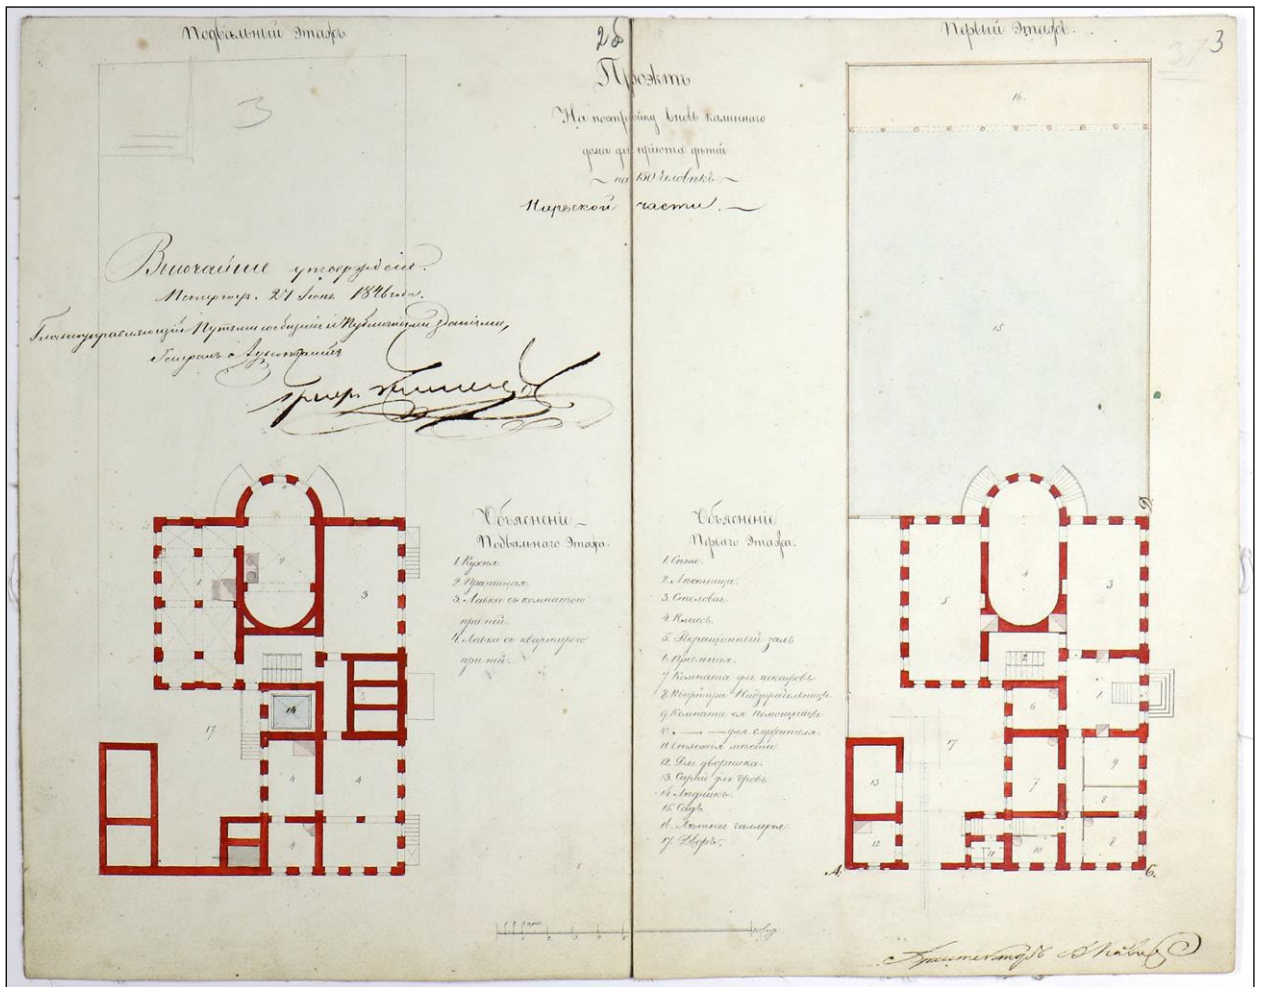 Подвальный Этажъ
2б
Первый Этажъ.
3
3
Проэктъ
На постройку вновь каменнаго
дома для пріюта дѣтей
на 150 человѣкъ
Нарвской части.
Высочайше утверждено.
Петергофъ. 27 Іюня 1846 года.
Главноуправляющій Путями сообщенія и Публичными зданіями,
Генералъ Адъютантъ
Объясненіе
Подвальнаго Этажа.
1. Кухня.
2. Прачешная.
3. Лавки съ комнатою
при ней.
4. Лавки съ квартирою
при ней.
Объясненіе
Перваго Этажа.
1. Сѣни.
2. Лѣстница.
3. Столовая.
4. Классъ.
5. Рекраціонный залъ
6. Пріемная.
7. Комната для шкафовъ
8. Квартира Надзирательницы
9. Комната ея Помощницы
10. — для служителя.
11. Отхожія мѣста.
12. Для дворника.
13. Сарай для дровъ
14. Ледникъ.
15. Садъ.
16. Лѣтняя галлерея.
17. Дворъ.
16.
15
1
2
3
4
4
4
14
17
5
4
3
2
1
6
7
9
8
8
10
11
12
13
17
А.
Б.
Архитекторъ